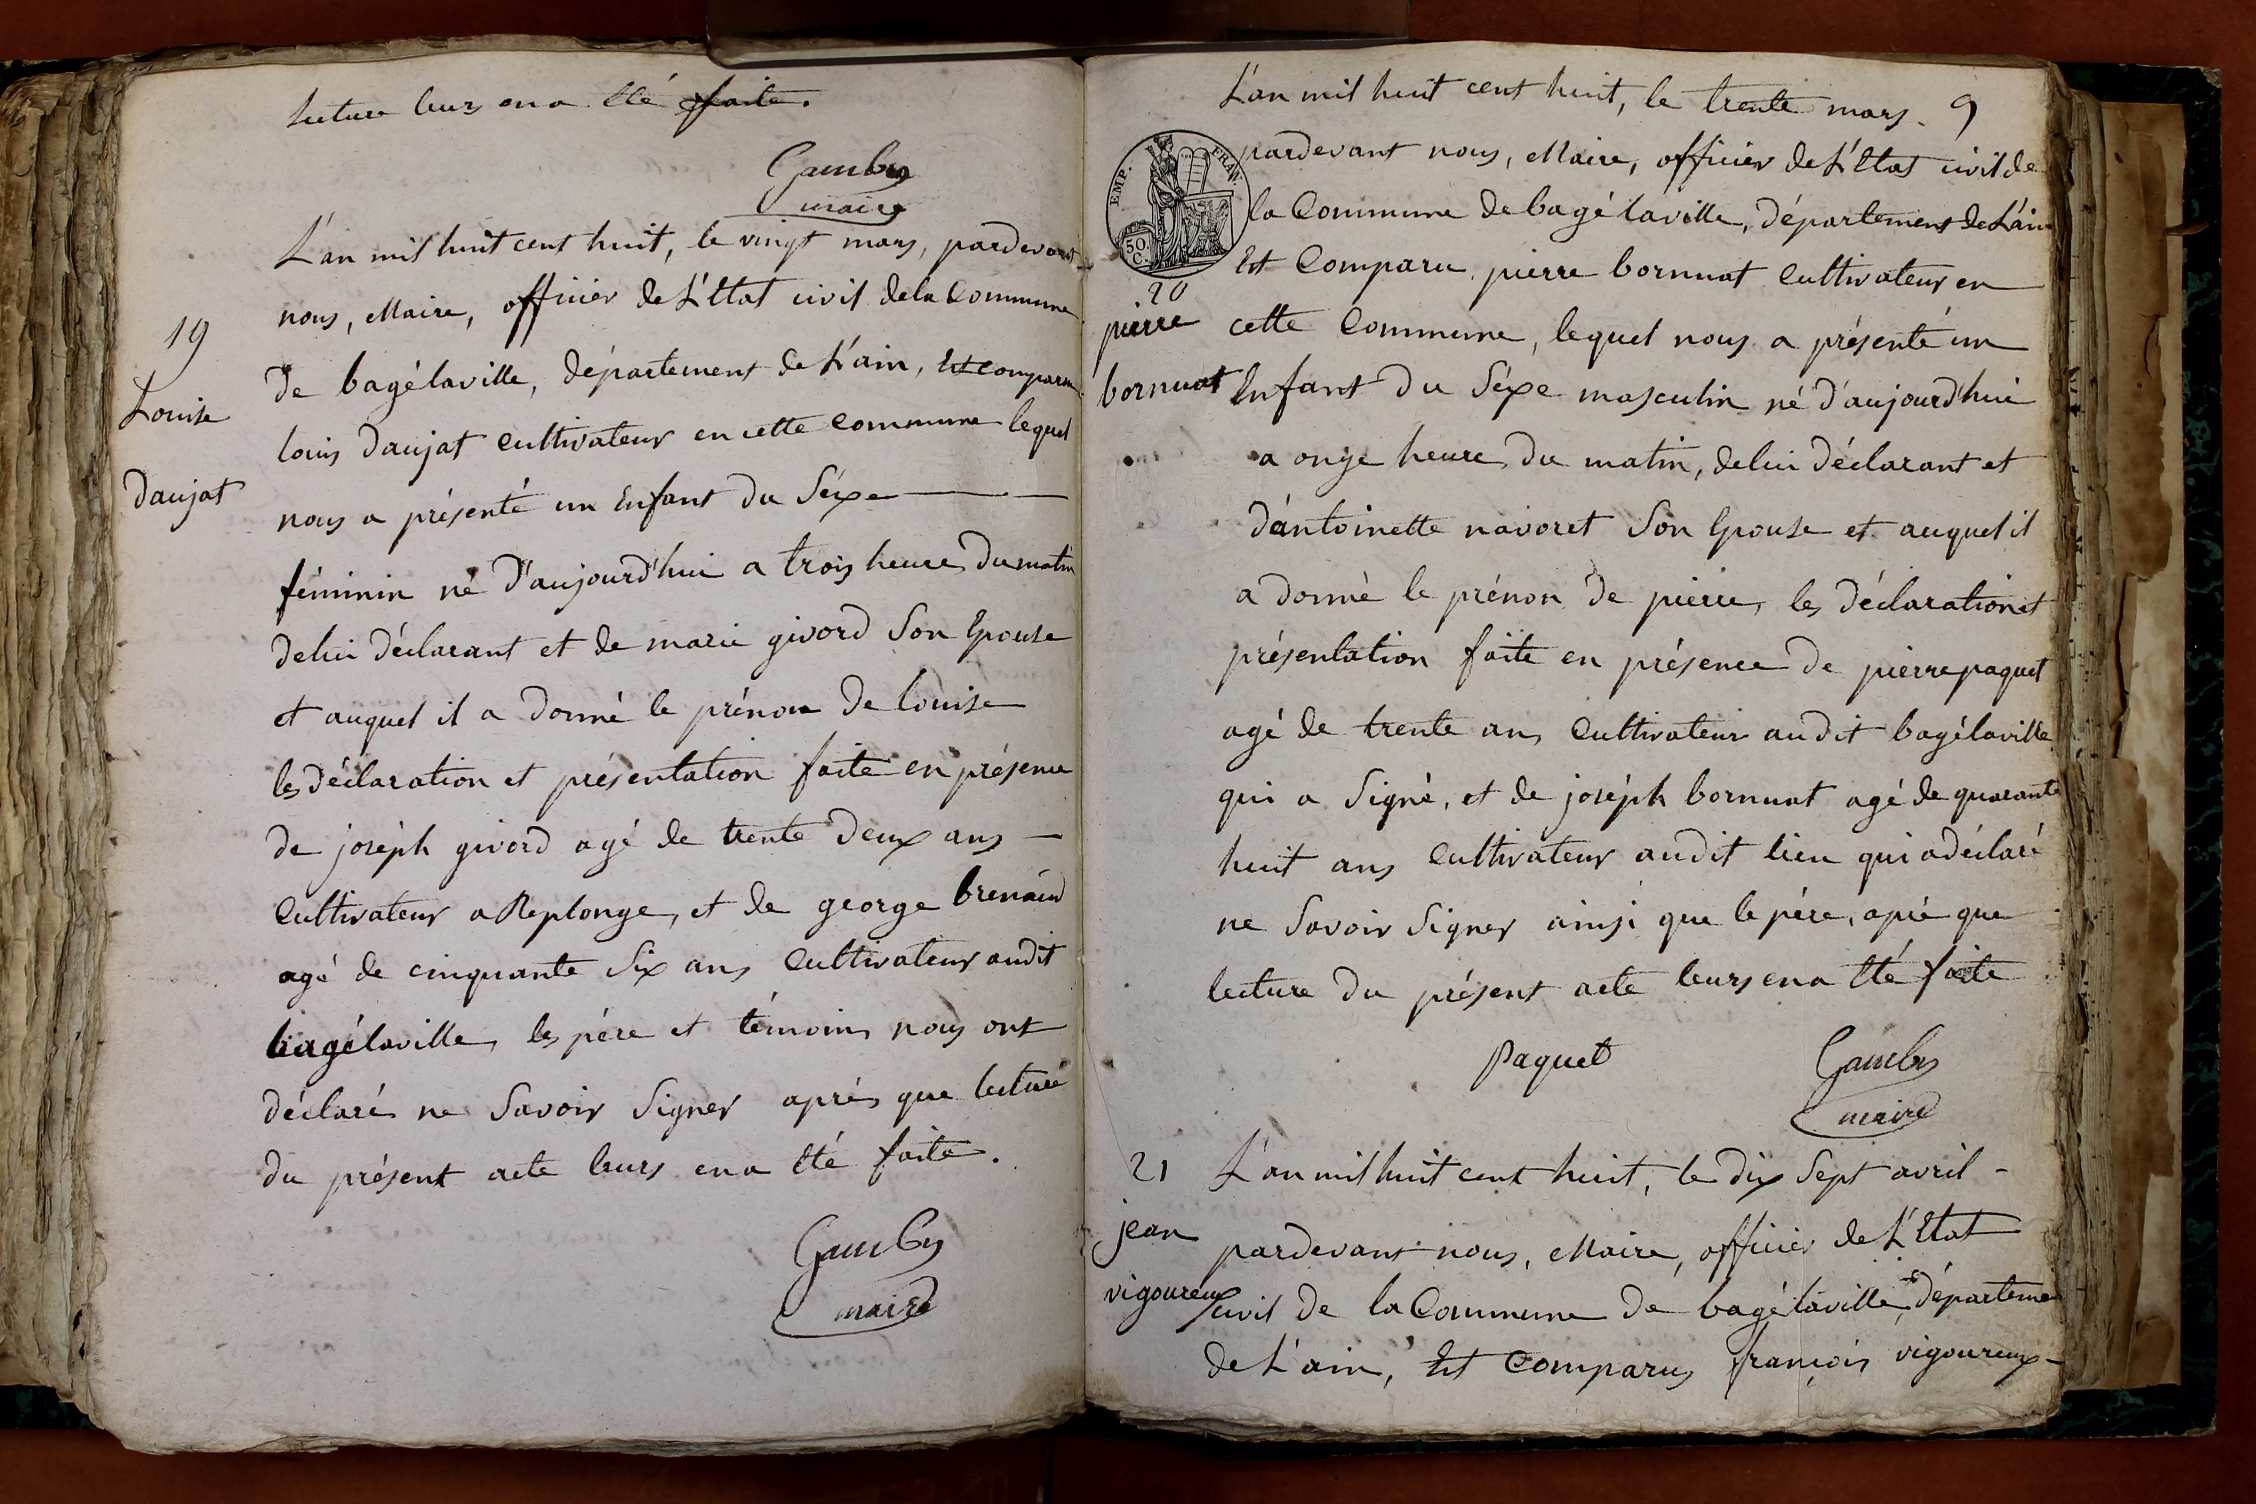 lecture leurs en a Eté faite.
Gambus
maire
L'an mil huit cent huit, le vingt mars, pardevant
nous, Maire, officier de L'Etat civil dela Commune
19
de bagélaville, département de L'ain, Est comparu
Louise
louis Daujat Cultivateur en cette commune lequel
Daujat
nous a présenté un Enfant du Séxe
féminin né D'aujourd'hui a trois heures Dumatin
delui déclarant et de marie givord Son Epouse
et auquel il a donné le prénom De louise
les déclaration et présentation faite en présence
de joséph givord agé de trente Deux ans
Cultivateur a Replonge, et de george
agé de cinquante Six ans Cultivateur audit
bagélaville, les père et témoins nous ont
déclarés ne Savoir Signer aprés que lecture
du présent acte leurs en a Eté faite.
maire
9
L'an mil huit cent huit, le trente mars.
EMP. FRAN.
50. C.
pardevant nous, Maire, officier de L'Etat civil de
la Commune de bagé laville, département de L'ain
Est Comparu, pierre bornuat Cultivateur en
20
pierre
bornuat
cette Commune, lequel nous a présenté un
Enfant du Séxe masculin né d'aujourd'hui
a onze heures du matin, delui déclarant et
d'antoinette navoret Son Epouse et auquel il
a donné le prénom de pierre, les déclaration et
présentation faite en présence de pierre paquet
agé de trente ans Cultivateur audit bagélaville
qui a Signé, et de joséph bornuat agé de quarante
huit ans Cultivateur audit lieu qui a déclaré
ne Savoir Signer ainsi que le pére, aprè que
lecture du présent acte leurs en a Eté faite
paquet
maire
21
L'an mil huit cent huit, le dix Sept avril
jean
vigoureux
pardevant nous, Maire, officier de L'Etat
civil de la Commune de bagélaville, départeme
de L'ain, Est Comparus françois vigoureux